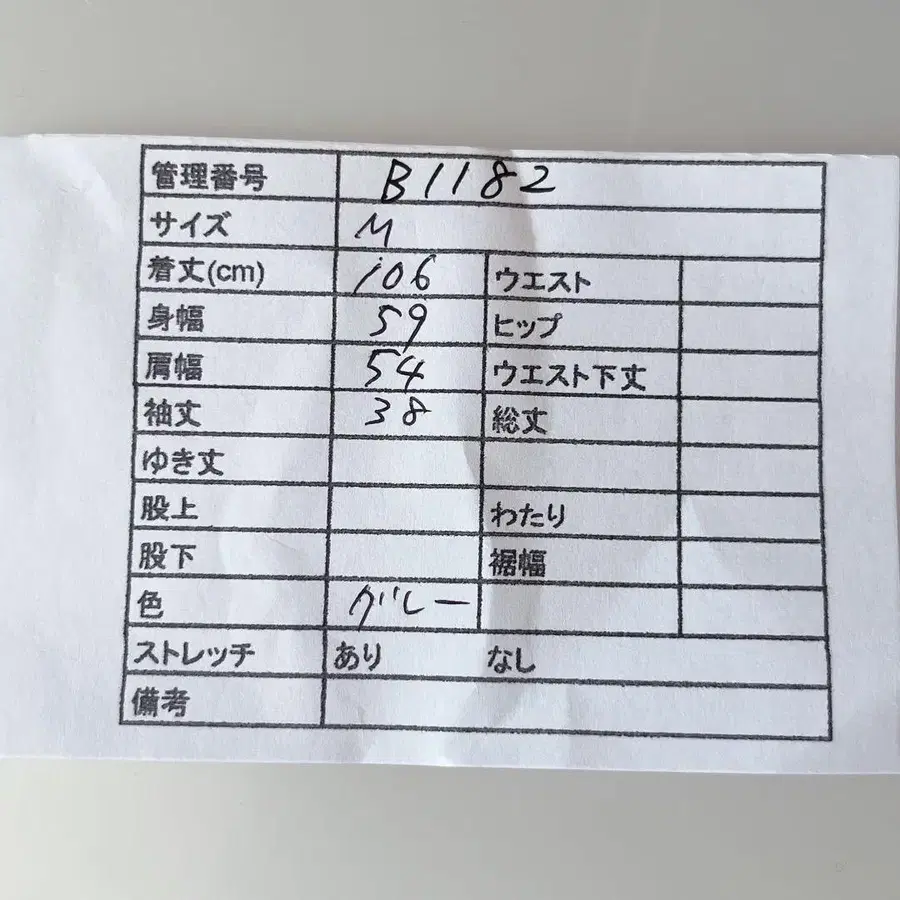 管理番号 B1182
サイズ M
着丈(cm) 106 ウエスト
身幅 59 ヒップ
肩幅 54 ウエスト下丈
袖丈 38 総丈
ゆき丈
股上 わたり
股下 裾幅
色 グレー
ストレッチ あり なし
備考